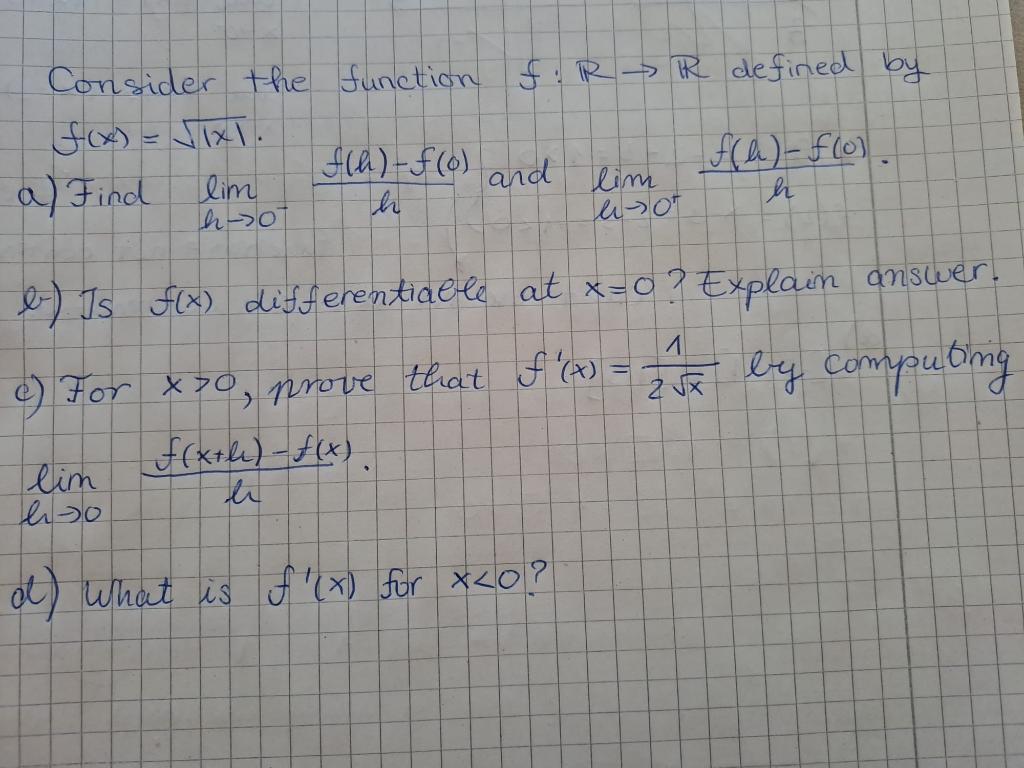 Consider the function f : ℝ → ℝ defined by
f(x) = √|x|.
a) Find lim_{h→0⁻} (f(h)-f(0))/h and lim_{h→0⁺} (f(h)-f(0))/h.
b) Is f(x) differentiable at x=0? Explain answer.
c) For x>0, prove that f'(x) = 1/(2√x) by computing
lim_{h→0} (f(x+h)-f(x))/h.
d) What is f'(x) for x<0?